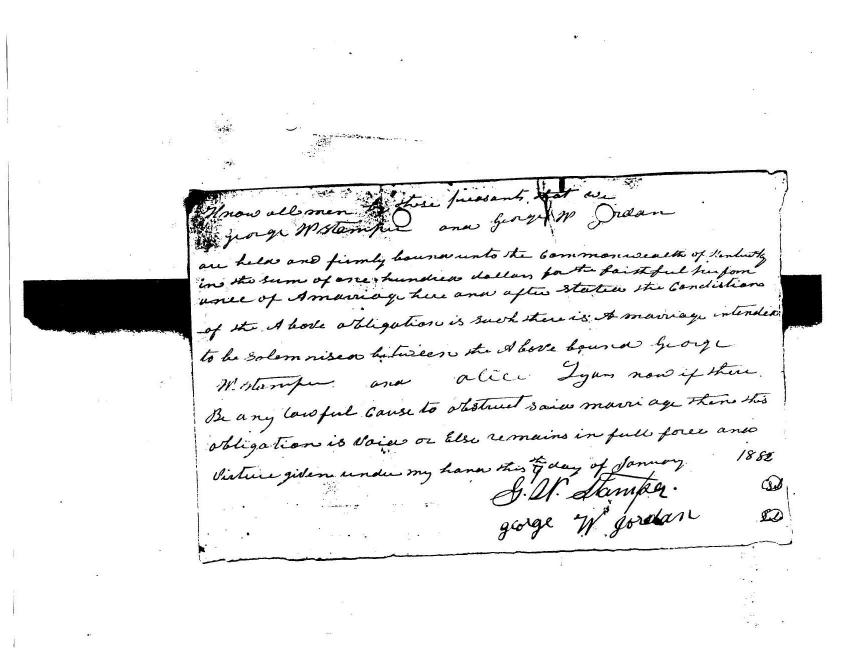 Know all men by these preasants that we
George W Stamper and George W Jordan
are held and firmly bound unto the Commonwealth of Kentucky
in the sum of one hundred dollars for the faithful perform
ance of A marriage here and after stated the Condistion
of the Above obligation is such there is A marriage intended
to be Solemnised between the Above bound George
W. Stamper and alice Lyons now if there
Be any lawful Cause to obstruct said marriage then this
obligation is Void or Else remains in full force and
Virture given under my hand this day of January 188
G. W. Stamper.
george W Jordan